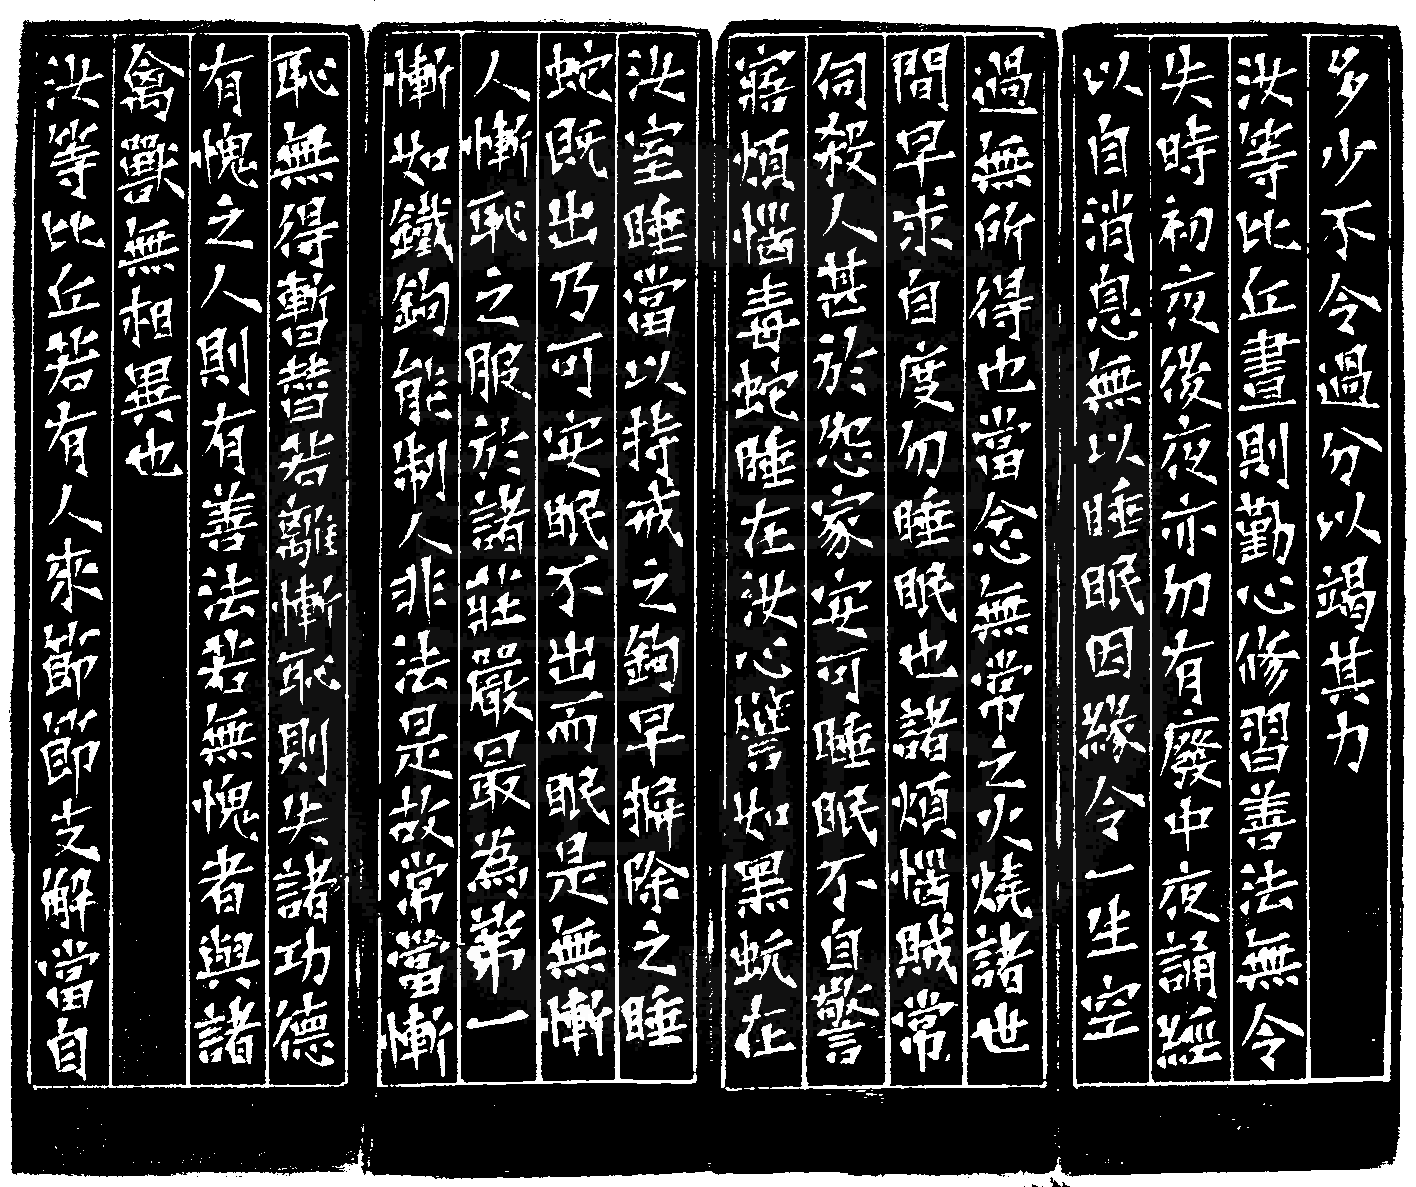 多少不令過分以竭其力
汝等比丘晝則勤心修習善法無令
失時初夜後夜亦勿有廢中夜誦經
以自消息無以睡眠因緣令一生空
過無所得也當念無常之火燒諸世
間早求自度勿睡眠也諸煩惱賊常
伺殺人甚於怨家安可睡眠不自警
寤煩惱毒蛇睡在汝心譬如黑蚖在
汝室睡當以持戒之鉤早摒除之睡
蛇既出乃可安眠不出而眠是無慚
人慚恥之服於諸莊嚴最為第一
慚如鐵鉤能制人非法是故常當慚
恥無得暫替若離慚恥則失諸功德
有愧之人則有善法若無愧者與諸
禽獸無相異也
汝等比丘若有人來節節支解當自